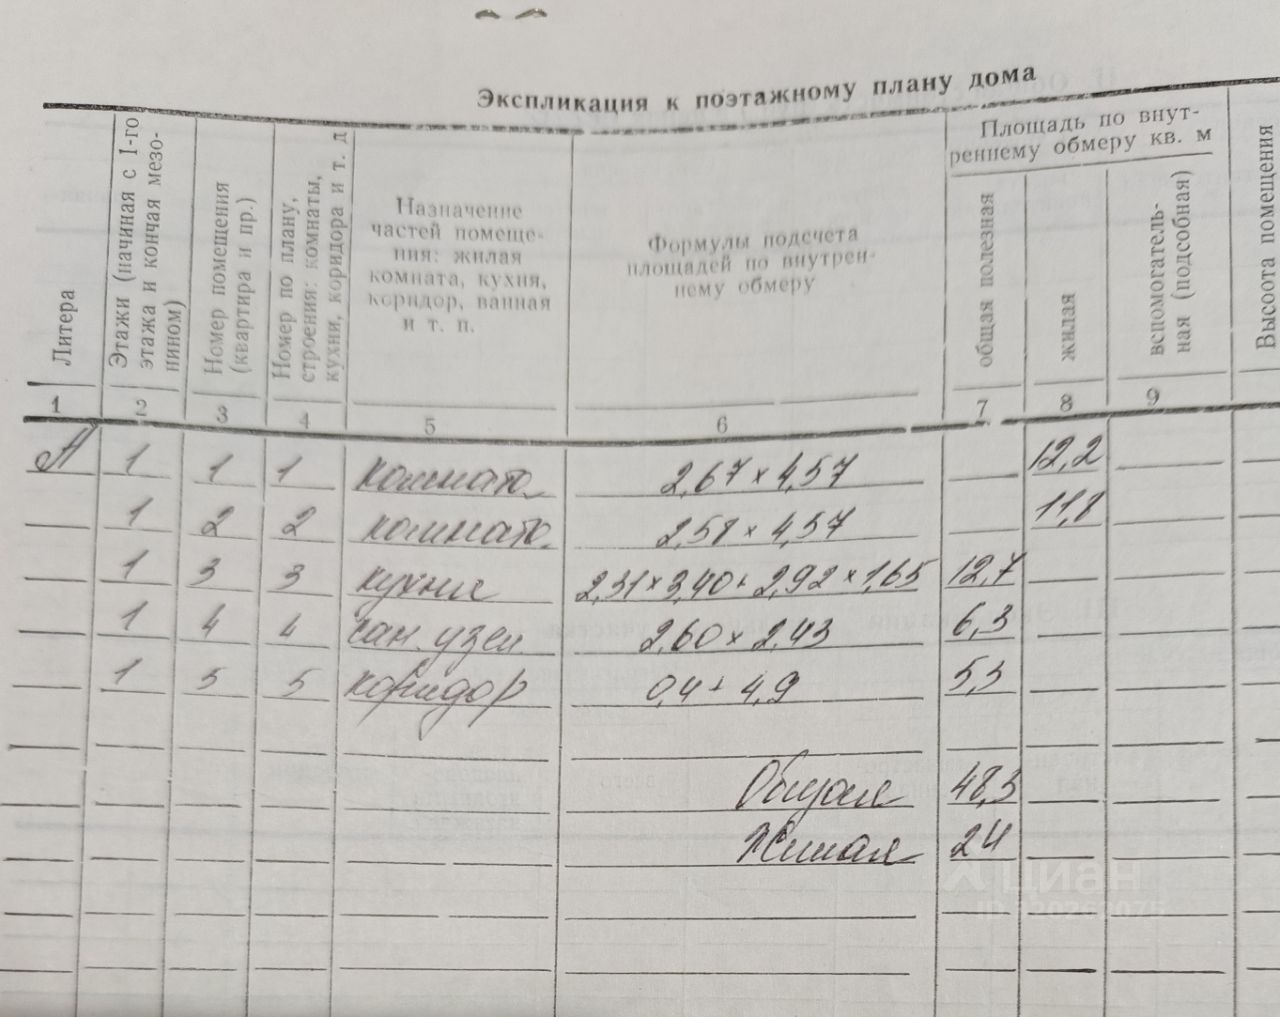 Экспликация к поэтажному плану дома
Литера
Этажи (начиная с 1-го
этажа и кончая мезо-
нином)
Номер помещения
(квартира и пр.)
Номер по плану,
строения: комнаты,
кухни, коридора и т. д
Назначение
частей помеще-
ния: жилая
комната, кухня,
коридор, ванная
и т. п.
Формулы подсчета
площадей по внутрен-
нему обмеру
Площадь по внут-
реннему обмеру кв. м
общая полезная
жилая
вспомогатель-
ная (подсобная)
Высота помещения
1 2 3 4 5 6 7 8 9
А 1 1 1 комната 2,67 × 4,57 12,2
1 2 2 комната 2,58 × 4,57 11,8
1 3 3 кухня 2,31 × 3,40 + 2,92 × 1,65 12,7
1 4 4 сан. узел 2,60 × 2,43 6,3
1 5 5 коридор 0,4 + 4,9 5,3
Общая 48,3
Жилая 24
циан